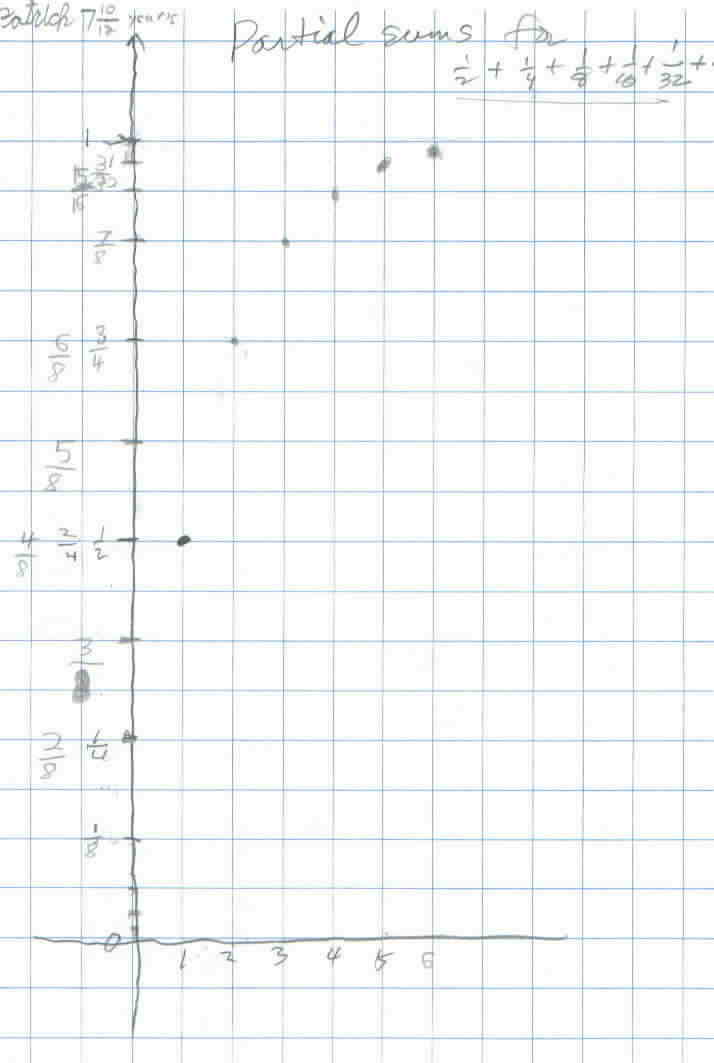 Patrick 7 10/12 years
Partial sums for
1/2 + 1/4 + 1/8 + 1/16 + 1/32 +
1
31/32
15/16
7/8
6/8 3/4
5/8
4/8 2/4 1/2
3
2/8 1/4
1/8
0 1 2 3 4 5 6